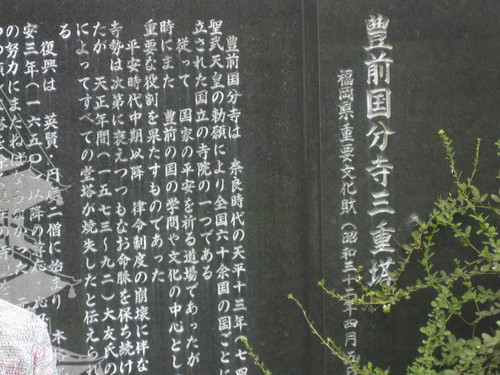 豊前国分寺三重塔
福岡県重要文化財(昭和三十年四月
豊前国分寺は 奈良時代の天平十三年(七四
聖武天皇の勅願により全国六十余国の国ごとに
立された国立の寺院の一つである
従って 国家の平安を祈る道場であったが
時にまた 豊前の国の学問や文化の中心とし
重要な役割を果たすものであった
平安時代中期以降 律令制度の崩壊に伴な
寺勢は次第に衰えつつもなお命脈を保ち続け
たが 天正年間(一五七三~九二)大友氏の
によってすべての堂塔が焼失したと伝えられ
る
復興は 英賢 円慶二僧に始まり
安三年(一六五〇)以降の
の努力にまたねばならなかった